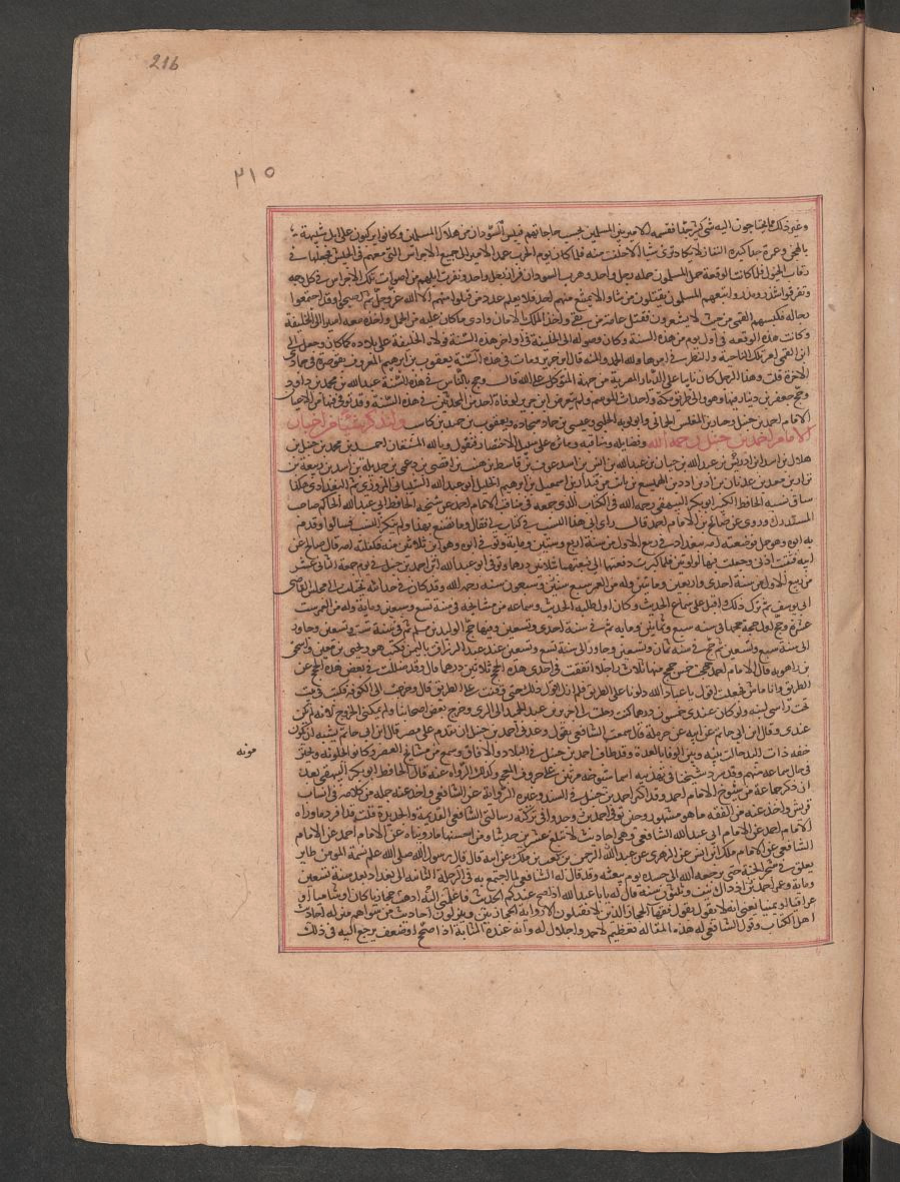 216
٢١٥
وغير ذلك مما يحتاجون اليه شى كثير جدا فقسمه الامير بين المسلمين بحسب حاجاتهم فيئس السودان من هلاك المسلمين وكانوا يركبون على ابل شبيهة
بالهجن وعرة جدا كثيرة النفار لا تكاد ترى شيا الا جفلت منه فلما كان يوم الحرب عمد الامير الى جميع الاجراس التى معهم فى الخيل فجعلها فى
رقاب الخيول فلما كانت الوقعة حمل المسلمون حملة رجل واحد وهرب السودان فرار رجل واحد ونفرت ابلهم من اصوات تلك الاجراس فى كل وجه
وتفرقوا شذر مذر واتبعهم المسلمون يقتلون من شاوا لا يمتنع منهم احد فلا يعلم عدد من قتلوا منهم الا الله عز وجل ثم اصبحوا وقد اجتمعوا
رجاله فكبسهم القمى من حيث لا يشعرون فقتل عامة من بقى واخذ الملك الامان وادى ما كان عليه من الحمل واخذه معه اسيرا الى الخليفة
وكانت هذه الوقعة فى اول يوم من هذه السنة وكان وصوله الى الخليفة فى اواخر هذه السنة فولاه الخليفة على بلاده كما كان وجعل الى
ابن القمى امر تلك الناحية والنظر فى امرها ولله الحمد والمنه قال ابن جرير ومات فى هذه السنة يعقوب بن ابرهيم المعروف بقوصرة فى جمادى
الاخرة قلت وهذا الرجل كان نايبا على الديار المصرية من جهة المتوكل على الله قال وحج بالناس فى هذه السنة عبد الله بن محمد بن داود
وحج جعفر بن دينار فيها وهو والى طريق مكة واحداث الموسم ولم يتعرض ابن جرير لوفاة احد من المحدثين فى هذه السنة وقد توفى فيها من الاعيان
الامام احمد بن حنبل وجبارة بن المغلس الحمانى وابو توبه الحلبى وعيسى بن حماد سجادة ويعقوب بن حميد بن كاسب ولنذكر شيئا من اخبار
الامام احمد بن حنبل رحمه الله وفضايله ومناقبه وماثره على سبيل الاختصار فنقول وبالله المستعان احمد بن محمد بن حنبل بن
هلال بن اسد بن ادريس بن عبد الله بن حيان بن عبد الله بن انس بن اسد بن عوف بن قاسط بن
نزار بن معد بن عدنان بن اد بن ادد بن الهميسع بن اسمعيل بن ابرهيم الخليل ابو عبد الله الشيبانى المروزى ثم البغدادى هكذا
ساق نسبه الحافظ الكبير ابو بكر البيهقى رحمه الله فى الكتاب الذى جمعه فى مناقب الامام احمد عن شيخه الحافظ ابى عبد الله الحاكم صاحب
المستدرك وروى عن صالح بن الامام احمد قال راى ابى هذا النسب فى كتاب لى فقال وما تصنع بهذا ولم ينكر النسب قالوا وقدم
به ابوه وهو حمل فوضعته امه ببغداد فى ربيع الاول من سنة اربع وستين وماية وتوفى ابوه وهو ابن ثلاثين سنة فكفلته امه قال صالح عن
ابيه فثقبت اذنى وجعلت فيها لولوتين فلما كبرت دفعتها الى فبعتهما بثلاثين درهما وتوفى ابو عبد الله احمد بن حنبل فى يوم جمعة الثانى عشر
من ربيع الاول من سنة احدى واربعين وماتين وله من العمر سبع وسبعون سنه رحمه الله وقد كان فى حداثته يختلف الى مجلس القاضى
ابى يوسف ثم ترك ذلك واقبل على سماع الحديث وكان اول طلبه الحديث وسماعه من مشايخه فى سنة تسع وسبعين وماية وله من العمر ست
عشرة وحج اول حجة حجها فى سنة سبع وثمانين ومايه ثم فى سنة احدى وتسعين وفيها حج الوليد بن مسلم ثم فى سنة ست وتسعين وجاور
الى سنة سبع وتسعين ثم حج فى سنة ثمان وتسعين وجاور الى سنة تسع وتسعين عند عبد الرزاق باليمن فكتب هو ويحيى بن معين واسحق
بن راهويه قال الامام احمد حججت خمس حجج منها ثلاث راجلا انفقت فى احدى هذه الحجج ثلاثين درهما قال وقد ضللت فى بعض هذه الحجج عن
الطريق وانا ماش فجعلت اقول يا عباد الله دلونا على الطريق فلم ازل اقول ذلك حتى وقفت على الطريق قال وخرجت الى الكوفة فكنت فى بيت
تحت راسى لبنه ولو كان عندى خمسون درهما كنت رحلت الى جرير بن عبد الحميد الى الرى وخرج بعض اصحابنا ولم يمكنى الخروج لانه لم يكن
عندى وقال ابن ابى حاتم عن ابيه عن حرملة قال سمعت الشافعى يقول وعدنى احمد بن حنبل ان يقدم على مصر قال ابن ابى حاتم يشبه ان تكون
خفة ذات اليد حالت بينه وبين الوفا بالعدة وقد طاف احمد بن حنبل فى البلاد والافاق وسمع من مشايخ العصر وكانوا يجلونه ويحترمونه
فى حال سماعه منهم وقد سرد شيخنا فى تهذيبه اسما شيوخه مرتبين على حروف المعجم وكذلك الرواه عنه قال الحافظ ابو بكر البيهقى بعد
ان ذكر جماعة من شيوخ الامام احمد وقد اكثر احمد بن حنبل فى المسند وغيره الرواية عن الشافعى واخذ عنه جملة من كلامه فى انساب
قريش واخذ عنه من الفقه ما هو مشهور وحين توفى احمد وجدوا فى تركته رسالتى الشافعى القديمة والجديدة قلت
الامام احمد عن الامام ابى عبد الله الشافعى وهى احاديث لا تبلغ عشرين حديثا ومن احسنها ما رويناه عن الامام احمد عن الامام
الشافعى عن الامام ملك بن انس عن الزهرى عن عبد الرحمن بن كعب بن ملك عن ابيه قال قال رسول الله صلى الله عليه نسمة المومن طاير
يعلق فى شجر الجنة حتى يرجعه الله الى جسده يوم يبعثه وقد قال له الشافعى لما اجتمع به فى الرحلة الثانيه الى بغداد بعد سنة تسعين
وماية وعمر احمد اذ ذاك نيف وثلثون سنة قال له يا ابا عبد الله اذا صح عندكم الحديث فاعلمنى به اذهب حجازيا كان او شاميا او
عراقيا او يمنيا يعنى انه لا يقول بقول فقها الحجاز الذين لا يقبلون الا رواية الحجازيين وينزلون احاديث من سواهم منزلة احاديث
اهل الكتاب وقول الشافعى له هذه المقاله تعظيم لاحمد واجلال له وانه عنده المثابة اذا صحح او ضعف يرجع اليه فى ذلك
مونه